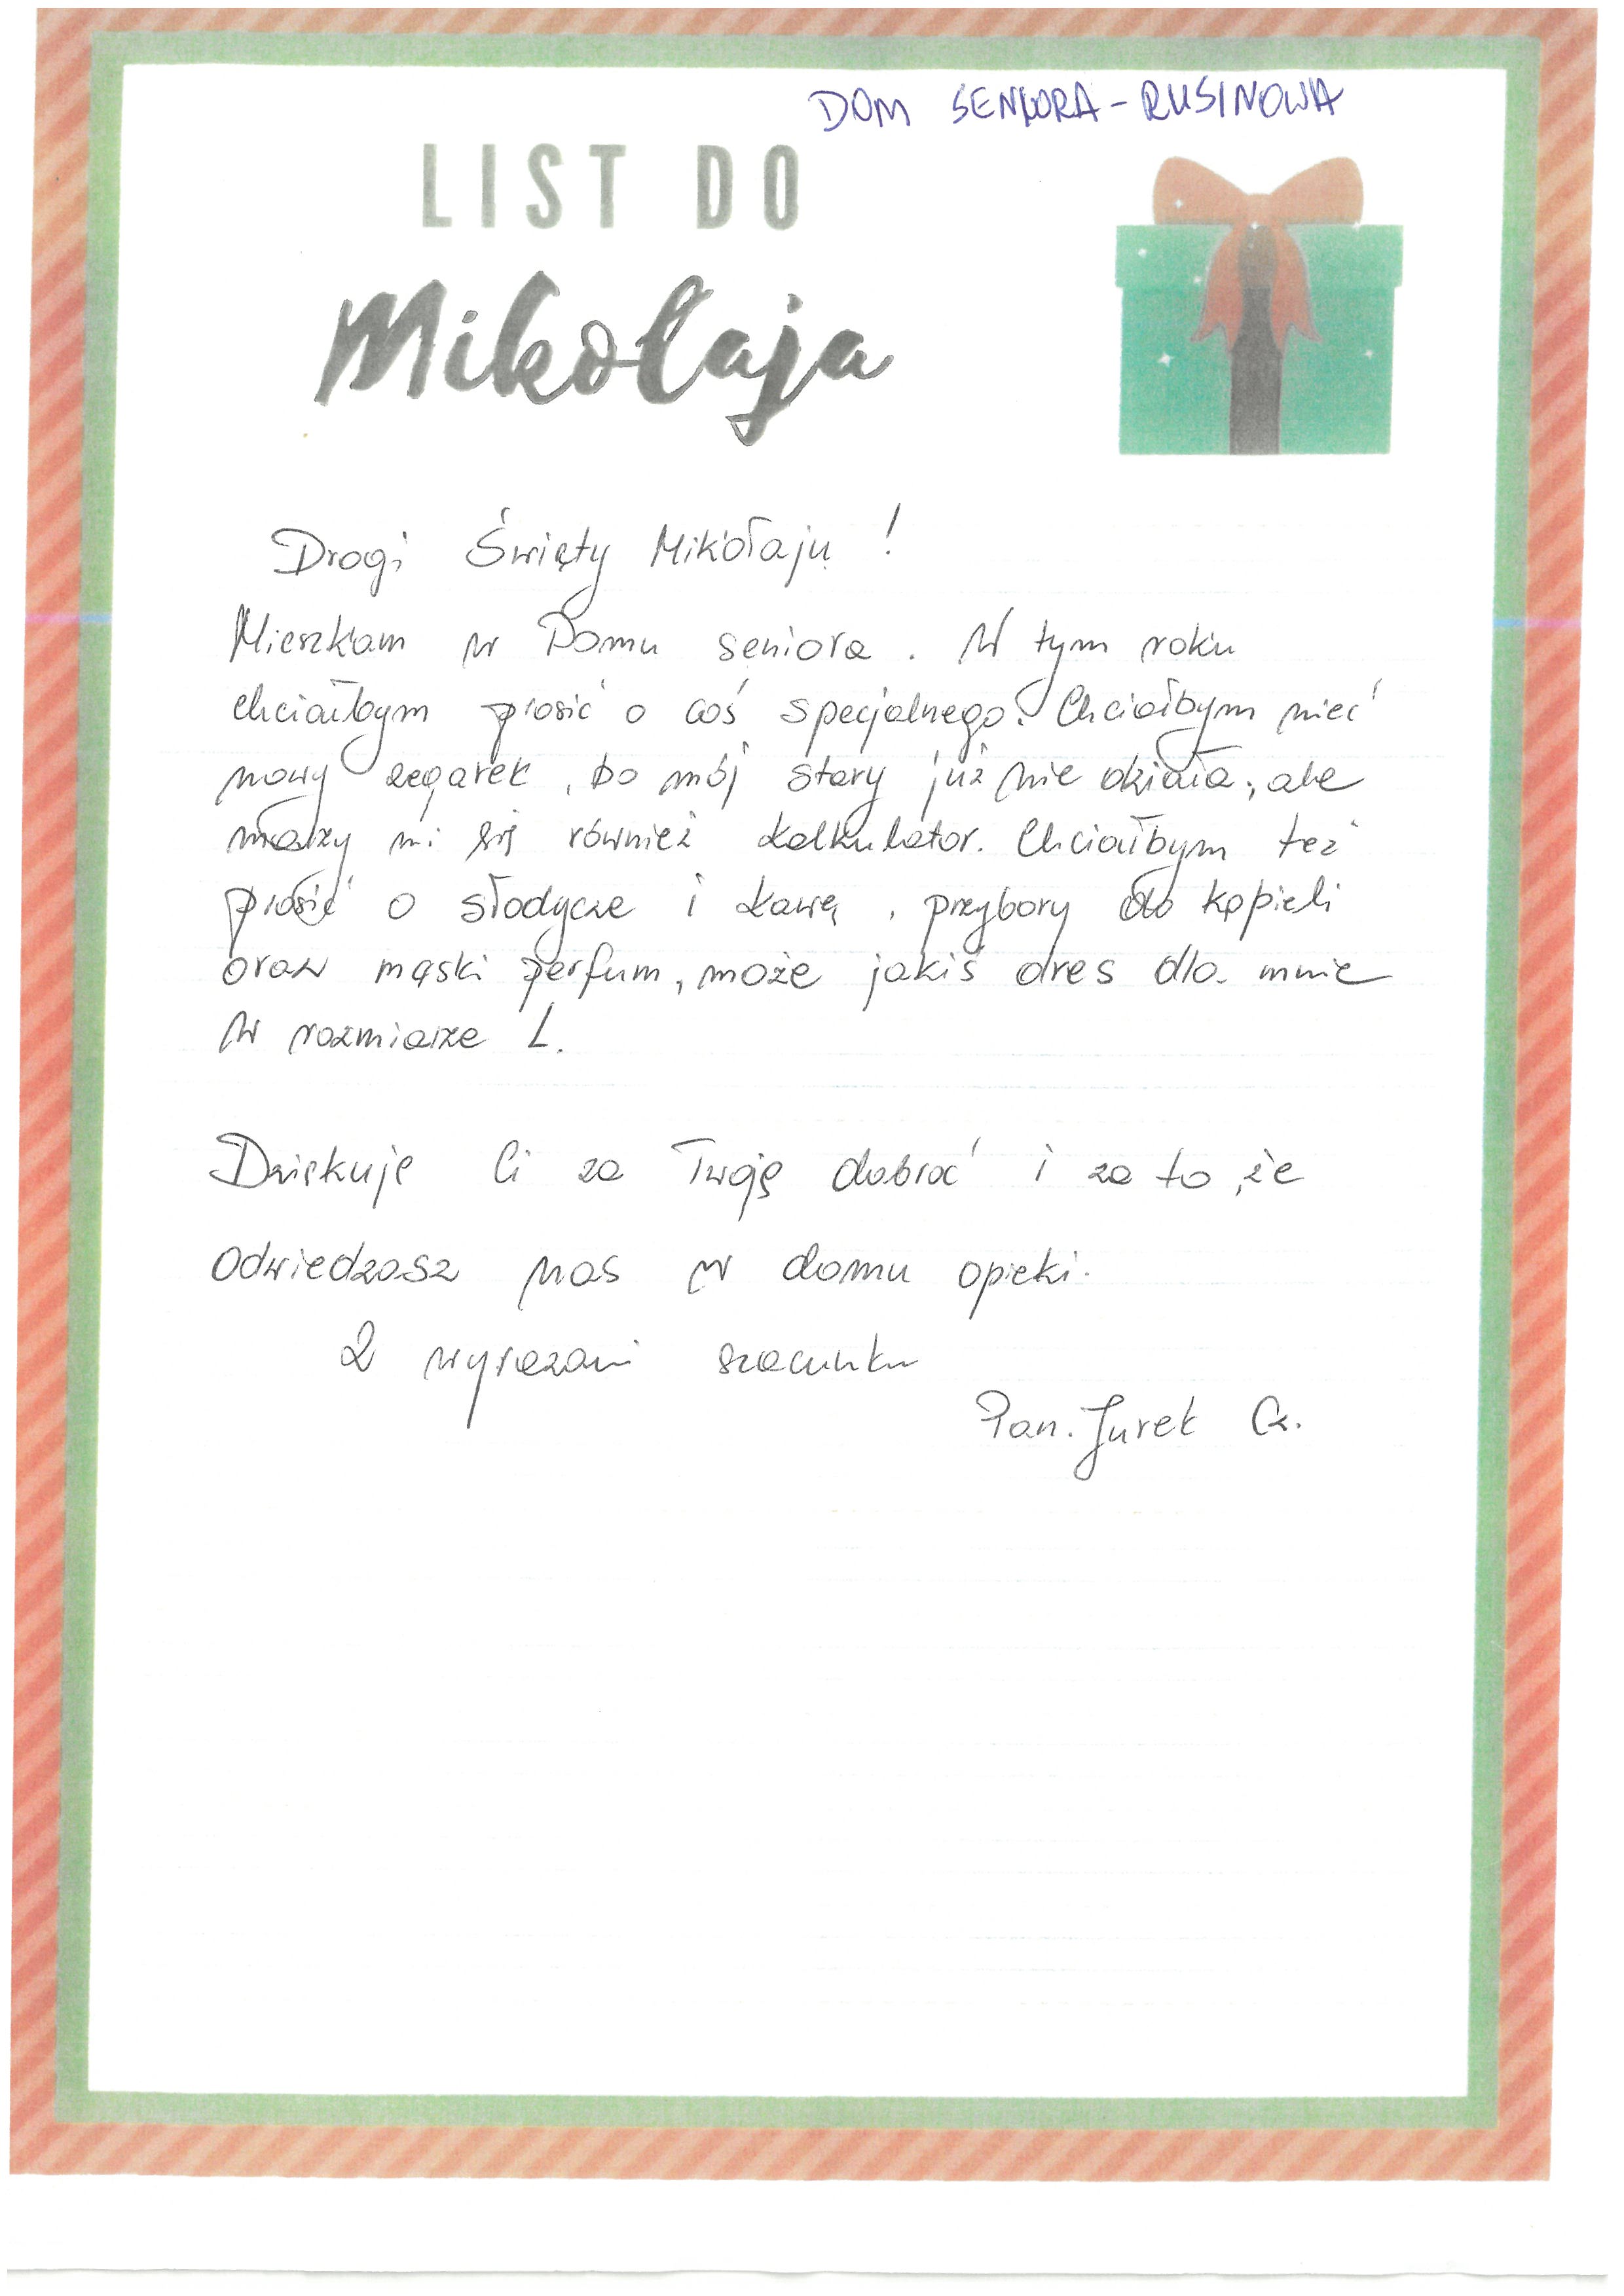 DOM SENIORA - RUSINOWA
LIST DO
Mikołaja
Drogi Święty Mikołaju !
Mieszkam w Domu seniora. W tym roku
chciałbym prosić o coś specjalnego. Chciałbym mieć
nowy zegarek, bo mój stary już nie działa, ale
marzy mi się również kalkulator. Chciałbym też
prosić o słodycze i kawę, przybory do kąpieli
oraz męski perfum, może jakiś dres dla mnie
w rozmiarze L.
Dziękuje Ci za Twoję dobroć i za to, że
odwiedzasz nas w domu opieki.
Z wyrazami szacunku
Pan. Jurek Cz.